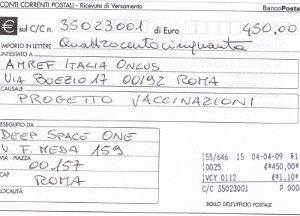 CONTI CORRENTI POSTALI - Ricevuta di Versamento BancoPosta
€ sul C/C n. 35023001 di Euro 450,00
IMPORTO IN LETTERE Quattrocentocinquanta
INTESTATO A
AMREF ITALIA ONLUS
VIA BOEZIO 17 00192 ROMA
CAUSALE
PROGETTO VACCINAZIONI
ESEGUITO DA
DEEP SPACE ONE
V. F. MEDA 159
VIA - PIAZZA
00157
CAP
ROMA
LOCALITÀ
55/646 15 04-04-09 #1
0025 €*450,00*
VCY 0112 €*1,10*
C/C 35023001 P 000
BOLLO DELL'UFFICIO POSTALE